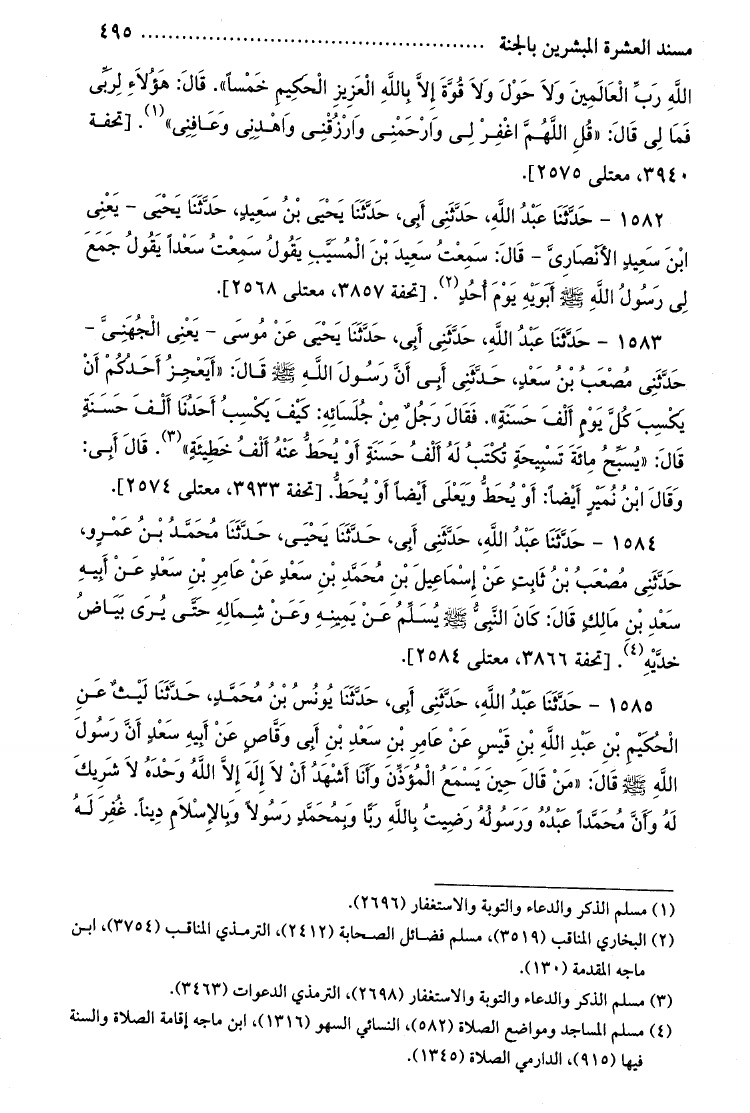 مسند العشرة المبشرين بالجنة ........................................ ٤٩٥
اللَّهِ رَبِّ الْعَالَمِينَ وَلاَ حَوْلَ وَلاَ قُوَّةَ إِلاَّ بِاللَّهِ الْعَزِيزِ الْحَكِيمِ خَمْساً». قَالَ: هَؤُلاَءِ لِرَبِّى
فَمَا لِى قَالَ: «قُلِ اللَّهُمَّ اغْفِرْ لِى وَارْحَمْنِى وَارْزُقْنِى وَاهْدِنِى وَعَافِنِى»(١). [تحفة
٣٩٤٠، معتلى ٢٥٧٥].
١٥٨٢ - حَدَّثَنَا عَبْدُ اللَّهِ، حَدَّثَنِى أَبِى، حَدَّثَنَا يَحْيَى بْنُ سَعِيدٍ، حَدَّثَنَا يَحْيَى - يَعْنِى
ابْنَ سَعِيدٍ الأَنْصَارِىَّ - قَالَ: سَمِعْتُ سَعِيدَ بْنَ الْمُسَيَّبِ يَقُولُ سَمِعْتُ سَعْداً يَقُولُ جَمَعَ
لِى رَسُولُ اللَّهِ ﷺ أَبَوَيْهِ يَوْمَ أُحُدٍ(٢). [تحفة ٣٨٥٧، معتلى ٢٥٦٨].
١٥٨٣ - حَدَّثَنَا عَبْدُ اللَّهِ، حَدَّثَنِى أَبِى، حَدَّثَنَا يَحْيَى عَنْ مُوسَى - يَعْنِى الْجُهَنِىَّ -
حَدَّثَنِى مُصْعَبُ بْنُ سَعْدٍ، حَدَّثَنِى أَبِى أَنَّ رَسُولَ اللَّهِ ﷺ قَالَ: «أَيَعْجِزُ أَحَدُكُمْ أَنْ
يَكْسِبَ كُلَّ يَوْمٍ أَلْفَ حَسَنَةٍ». فَقَالَ رَجُلٌ مِنْ جُلَسَائِهِ: كَيْفَ يَكْسِبُ أَحَدُنَا أَلْفَ حَسَنَةٍ
قَالَ: «يُسَبِّحُ مِائَةَ تَسْبِيحَةٍ تُكْتَبُ لَهُ أَلْفُ حَسَنَةٍ أَوْ يُحَطُّ عَنْهُ أَلْفُ خَطِيئَةٍ»(٣). قَالَ أَبِى:
وَقَالَ ابْنُ نُمَيْرٍ أَيْضاً: أَوْ يُحَطُّ وَيَعْلَى أَيْضاً أَوْ يُحَطُّ. [تحفة ٣٩٣٣، معتلى ٢٥٧٤].
١٥٨٤ - حَدَّثَنَا عَبْدُ اللَّهِ، حَدَّثَنِى أَبِى، حَدَّثَنَا يَحْيَى، حَدَّثَنَا مُحَمَّدُ بْنُ عَمْرٍو،
حَدَّثَنِى مُصْعَبُ بْنُ ثَابِتٍ عَنْ إِسْمَاعِيلَ بْنِ مُحَمَّدِ بْنِ سَعْدٍ عَنْ عَامِرِ بْنِ سَعْدٍ عَنْ أَبِيهِ
سَعْدِ بْنِ مَالِكٍ قَالَ: كَانَ النَّبِىُّ ﷺ يُسَلِّمُ عَنْ يَمِينِهِ وَعَنْ شِمَالِهِ حَتَّى يُرَى بَيَاضُ
خَدَّيْهِ(٤). [تحفة ٣٨٦٦، معتلى ٢٥٨٤].
١٥٨٥ - حَدَّثَنَا عَبْدُ اللَّهِ، حَدَّثَنِى أَبِى، حَدَّثَنَا يُونُسُ بْنُ مُحَمَّدٍ، حَدَّثَنَا لَيْثٌ عَنِ
الْحُكَيْمِ بْنِ عَبْدِ اللَّهِ بْنِ قَيْسٍ عَنْ عَامِرِ بْنِ سَعْدِ بْنِ أَبِى وَقَّاصٍ عَنْ أَبِيهِ سَعْدٍ أَنَّ رَسُولَ
اللَّهِ ﷺ قَالَ: «مَنْ قَالَ حِينَ يَسْمَعُ الْمُؤَذِّنَ وَأَنَا أَشْهَدُ أَنْ لاَ إِلَهَ إِلاَّ اللَّهُ وَحْدَهُ لاَ شَرِيكَ
لَهُ وَأَنَّ مُحَمَّداً عَبْدُهُ وَرَسُولُهُ رَضِيتُ بِاللَّهِ رَبًّا وَبِمُحَمَّدٍ رَسُولاً وَبِالإِسْلاَمِ دِيناً. غُفِرَ لَهُ
(١) مسلم الذكر والدعاء والتوبة والاستغفار (٢٦٩٦).
(٢) البخاري المناقب (٣٥١٩)، مسلم فضائل الصحابة (٢٤١٢)، الترمذي المناقب (٣٧٥٤)، ابن
ماجه المقدمة (١٣٠).
(٣) مسلم الذكر والدعاء والتوبة والاستغفار (٢٦٩٨)، الترمذي الدعوات (٣٤٦٣).
(٤) مسلم المساجد ومواضع الصلاة (٥٨٢)، النسائي السهو (١٣١٦)، ابن ماجه إقامة الصلاة والسنة
فيها (٩١٥)، الدارمي الصلاة (١٣٤٥).